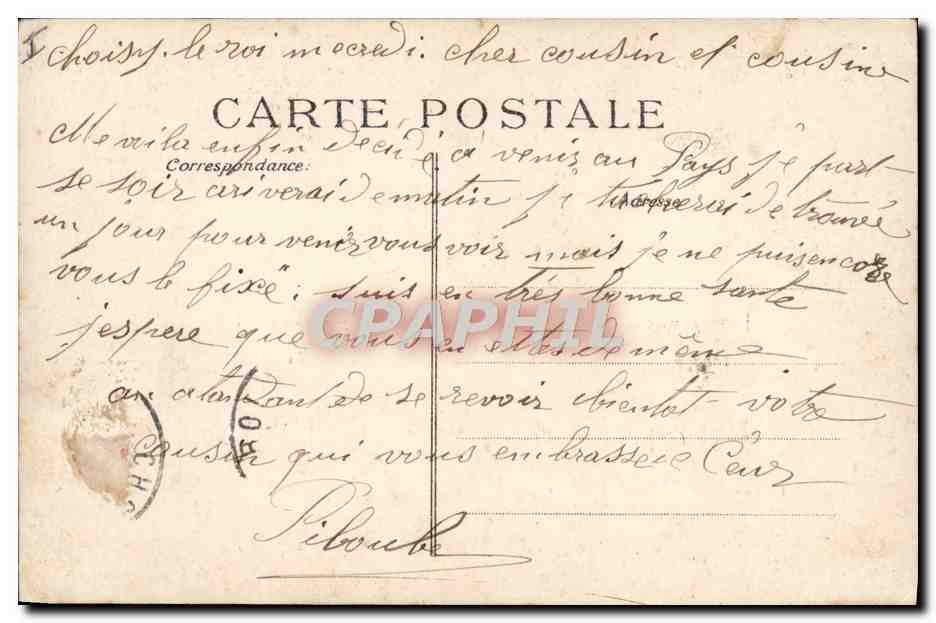 Choisy. le roi mecredi. cher cousin et cousine
CARTE POSTALE
Me voila enfin decidé a venir au Pays je part
Correspondance:
se soir ariverai demain matin je tacherai de trouvé
Adresse
un jour pour venir vous voir mais je ne puis encore
vous le fixé. suis en trés bonne santé
CPAPHIL
j'espere que vous en etes de même
en atandant de se revoir bientot votre
cousin qui vous embrasse de Cœur
Piboube
CHO
ROI